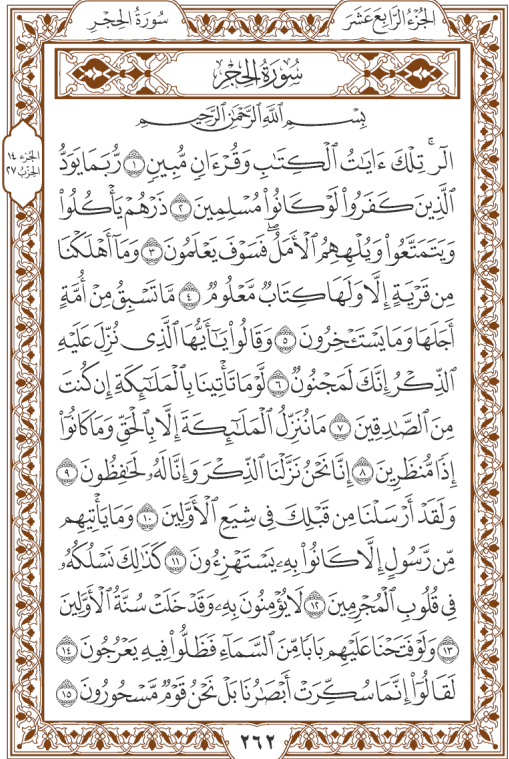 الجُزْءُ الرَّابِعَ عَشَرَ
سُورَةُ الحِجْرِ
سُورَةُ الحِجْرِ
بِسْمِ ٱللَّهِ ٱلرَّحْمَٰنِ ٱلرَّحِيمِ
الجزء ١٤
الحزب ٢٧
الٓرۚ تِلْكَ ءَايَٰتُ ٱلْكِتَٰبِ وَقُرْءَانٖ مُّبِينٖ ١ رُّبَمَا يَوَدُّ
ٱلَّذِينَ كَفَرُواْ لَوْ كَانُواْ مُسْلِمِينَ ٢ ذَرْهُمْ يَأْكُلُواْ
وَيَتَمَتَّعُواْ وَيُلْهِهِمُ ٱلْأَمَلُۖ فَسَوْفَ يَعْلَمُونَ ٣ وَمَآ أَهْلَكْنَا
مِن قَرْيَةٍ إِلَّا وَلَهَا كِتَابٞ مَّعْلُومٞ ٤ مَّا تَسْبِقُ مِنْ أُمَّةٍ
أَجَلَهَا وَمَا يَسْتَـْٔخِرُونَ ٥ وَقَالُواْ يَٰٓأَيُّهَا ٱلَّذِي نُزِّلَ عَلَيْهِ
ٱلذِّكْرُ إِنَّكَ لَمَجْنُونٞ ٦ لَّوْمَا تَأْتِينَا بِٱلْمَلَٰٓئِكَةِ إِن كُنتَ
مِنَ ٱلصَّٰدِقِينَ ٧ مَا نُنَزِّلُ ٱلْمَلَٰٓئِكَةَ إِلَّا بِٱلْحَقِّ وَمَا كَانُوٓاْ
إِذٗا مُّنظَرِينَ ٨ إِنَّا نَحْنُ نَزَّلْنَا ٱلذِّكْرَ وَإِنَّا لَهُۥ لَحَٰفِظُونَ ٩
وَلَقَدْ أَرْسَلْنَا مِن قَبْلِكَ فِي شِيَعِ ٱلْأَوَّلِينَ ١٠ وَمَا يَأْتِيهِم
مِّن رَّسُولٍ إِلَّا كَانُواْ بِهِۦ يَسْتَهْزِءُونَ ١١ كَذَٰلِكَ نَسْلُكُهُۥ
فِي قُلُوبِ ٱلْمُجْرِمِينَ ١٢ لَا يُؤْمِنُونَ بِهِۦ وَقَدْ خَلَتْ سُنَّةُ ٱلْأَوَّلِينَ
١٣ وَلَوْ فَتَحْنَا عَلَيْهِم بَابٗا مِّنَ ٱلسَّمَآءِ فَظَلُّواْ فِيهِ يَعْرُجُونَ ١٤
لَقَالُوٓاْ إِنَّمَا سُكِّرَتْ أَبْصَٰرُنَا بَلْ نَحْنُ قَوْمٞ مَّسْحُورُونَ ١٥
٢٦٢